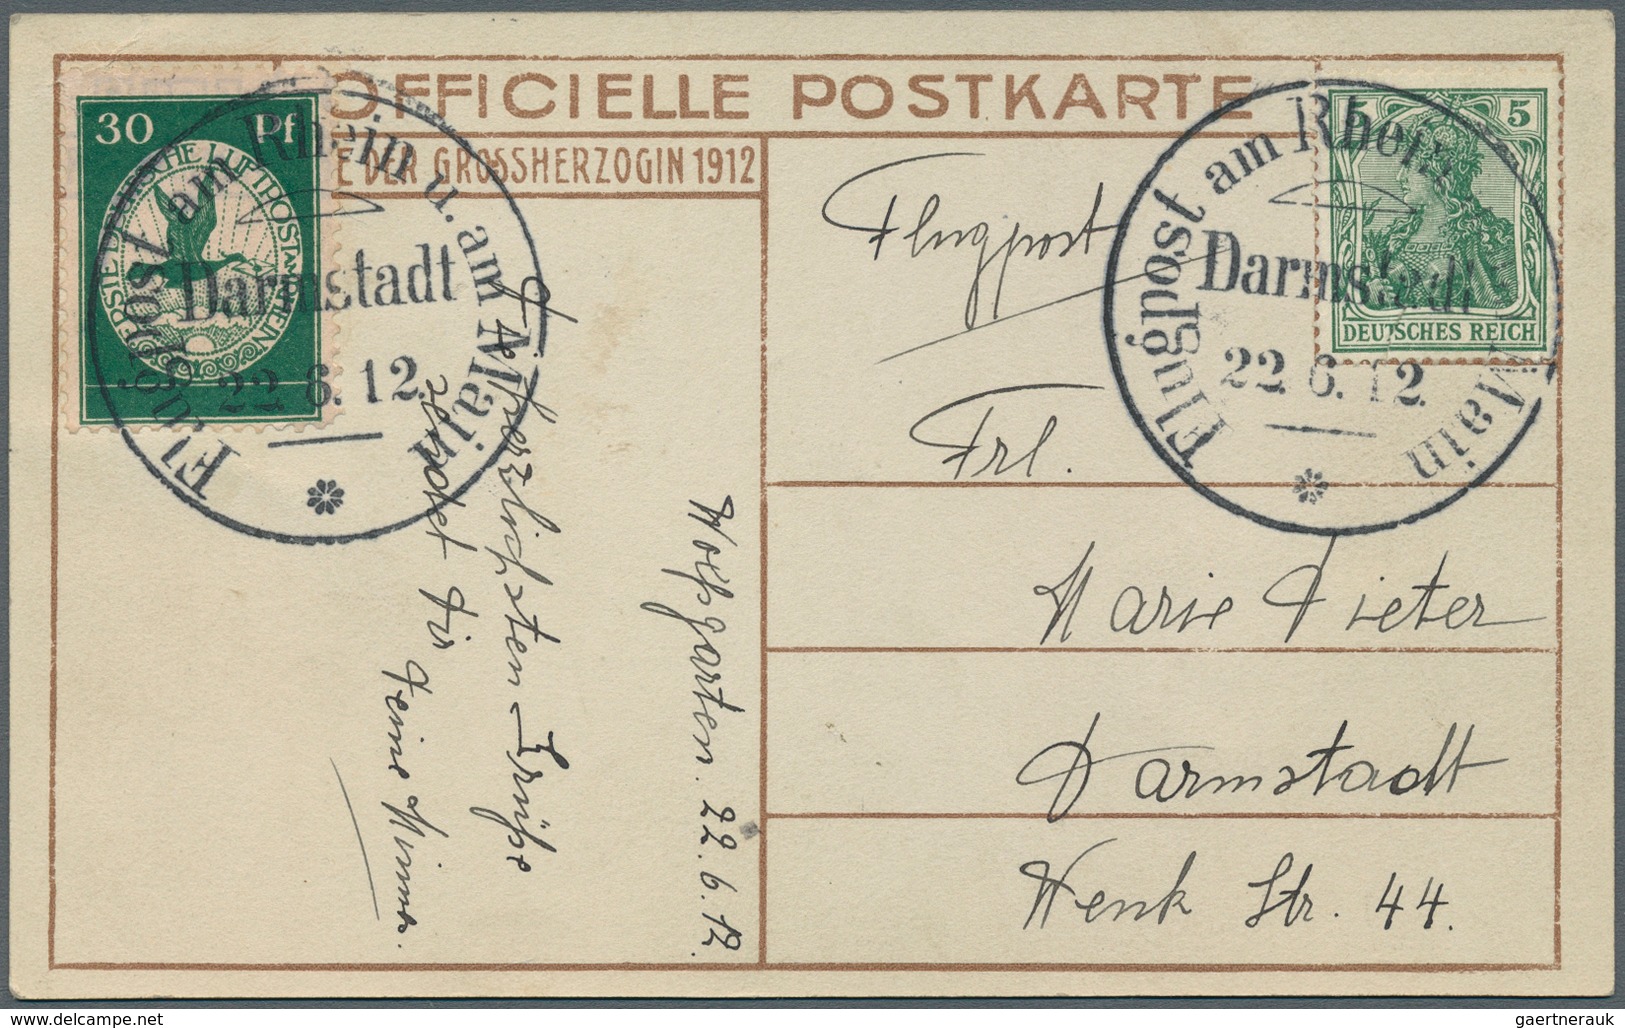 OFFICIELLE POSTKARTE
E DER GROSSHERZOGIN 1912
30 Pf
ERSTE DEUTSCHE LUFTPOST AM RHEIN
Flugpost am Rhein u. am Main
Darmstadt
22.6.12.
5 5
DEUTSCHES REICH
Flugpost am Rhein Main
Darmstadt
22.6.12.
Flugpost
Frl.
Marie Dieter
Darmstadt
Wenk Str. 44.
Wolfsgarten. 22.6.12.
Die herzlichsten Grüße
sendet Dir
Deine
gaertnerauk